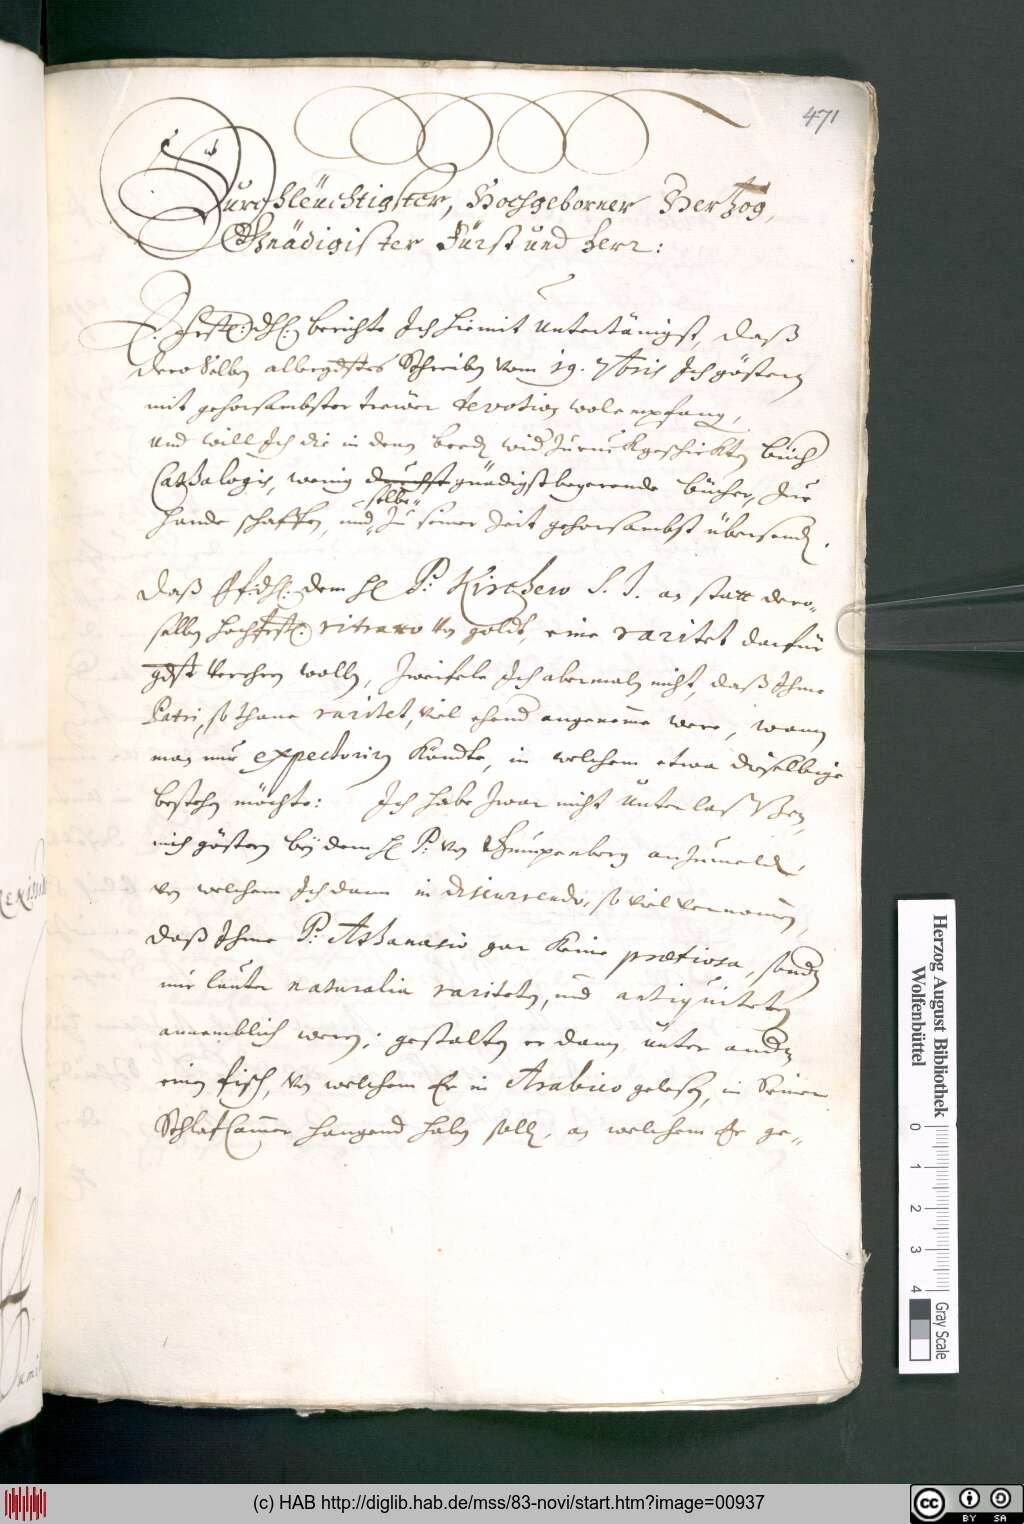 471
Durchleüchtigster, Hochgeborner Hertzog,
Gnädigister Fürst und Herr:
E: Frstl: dhl: berichte Ich hiemit Untertänigst, daß
dero selben allergdstes Schreiben vom 19. 7bris Ich göstern
mit gehorsambster trewer devotion wol empfang,
und will Ich die in denen beeden wider Zuruckgeschickten büch
Cathalogis, wenig gnädigst begerende bücher, Zue
selbe
handen schaffen, und Zu seiner Zeit gehorsambst übersenden.
Daß E: f: dhl: dem H P: Kircher S. J. an statt dero-
selben hochfrstl: ritratto von goldt, eine raritet darfür
gdst verehren wolln, Zweifele Ich abermaln nicht, daß Ihme
Patri, so thane raritet, viel ehend angeneme were, wann
man nur expectorirn köndte, in welchem etwa dieselbige
bestehn möchte: Ich habe Zwar nicht unterlassen,
mich göstern bey dem H P: von anzumelden,
von welchem Ich dann in discurrendo, so viel vernommen,
daß Ihme P: Athanasio gar keine prætiosa, sondern
nur lauter naturalia rariteten, und antiquiteten
annemblich weren; gestalten er dann unter andern
einen fisch, von welchem Er in Arabico gelesen, in seiner
Schlafcammer hangend haben solle, an welchem Er ge-
Herzog August Bibliothek
Wolfenbüttel
0 1 2 3 4
Gray Scale
(c) HAB http://diglib.hab.de/mss/83-novi/start.htm?image=00937
cc BY SA